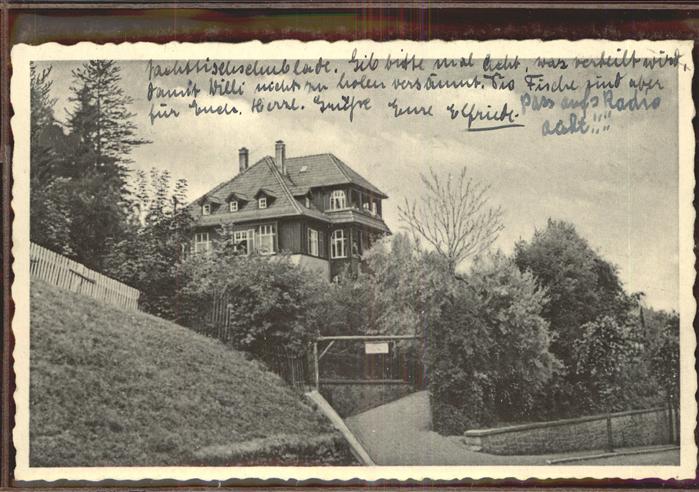 Nachttischschublade. Gib bitte mal Acht, was verteilt wird,
damit Willi nicht zu holen versäumt. Die Fische sind aber
für Euch. Herzl. Grüße Eure Elfriede.
Pass aufs Radio
acht!!!